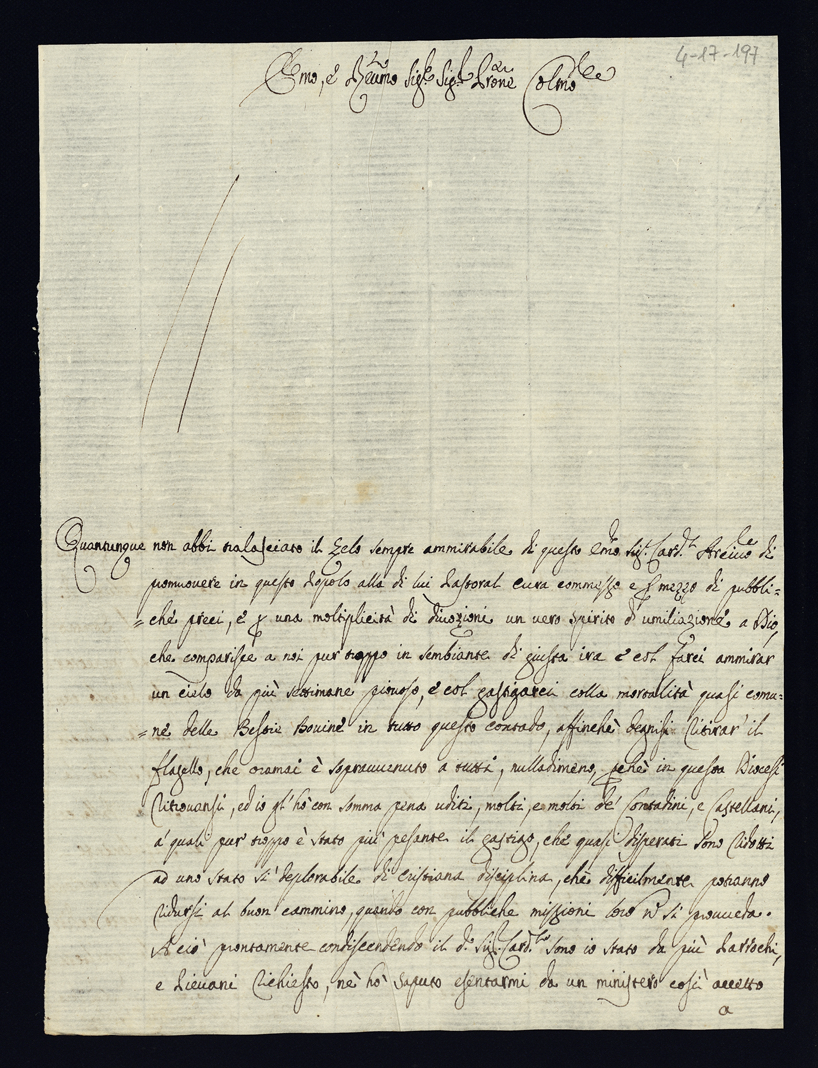 4-17-197
Emo, e Reumo Sigr. Sigr. Prone Colmo
Quantunque non abbi tralasciato il Zelo sempre ammirabile di questo Emo Sigr. Card.le Arciuo di
promuovere in questo Popolo alla di lui Pastoral cura commesso e p mezzo di pubbli=
=che preci, e p una moltiplicità di diuozioni un vero spirito d'umiliazione a Dio,
che comparisce a noi pur troppo in sembiante di giusta ira e col farci ammirar
un cielo da più settimane piouoso, e col gastigarci colla mortalità quasi comu=
=ne delle Bestie Bouine in tutto questo contado, affinchè degnisi ritirar il
flagello, che oramai è soprauuenuto a tutti, nulladimeno, pchè in questa Diocesi
ritrouansi, ed io gl'hò con somma pena uditi, molti, e molti de' Contadini, e Castellani,
a' quali pur troppo è stato più pesante il gastigo, che quasi disperati sono ridotti
ad uno stato sì deplorabile di cristiana disciplina, che difficilmente potranno
ridursi al buon cammino, quando con pubbliche missioni loro nō si prouueda.
A ciò prontamente condiscendendo il do. Sigr. Card.le sono io stato da più Parrochi,
e Pieuani richiesto, nè hò saputo esentarmi da un ministero così accetto
a